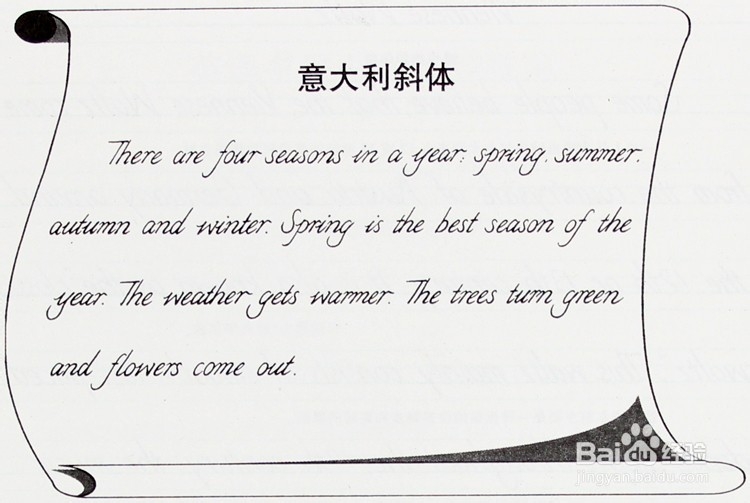 意大利斜体
There are four seasons in a year: spring, summer,
autumn and winter. Spring is the best season of the
year. The weather gets warmer. The trees turn green
and flowers come out.
Baidu经验
jingyan.baidu.com